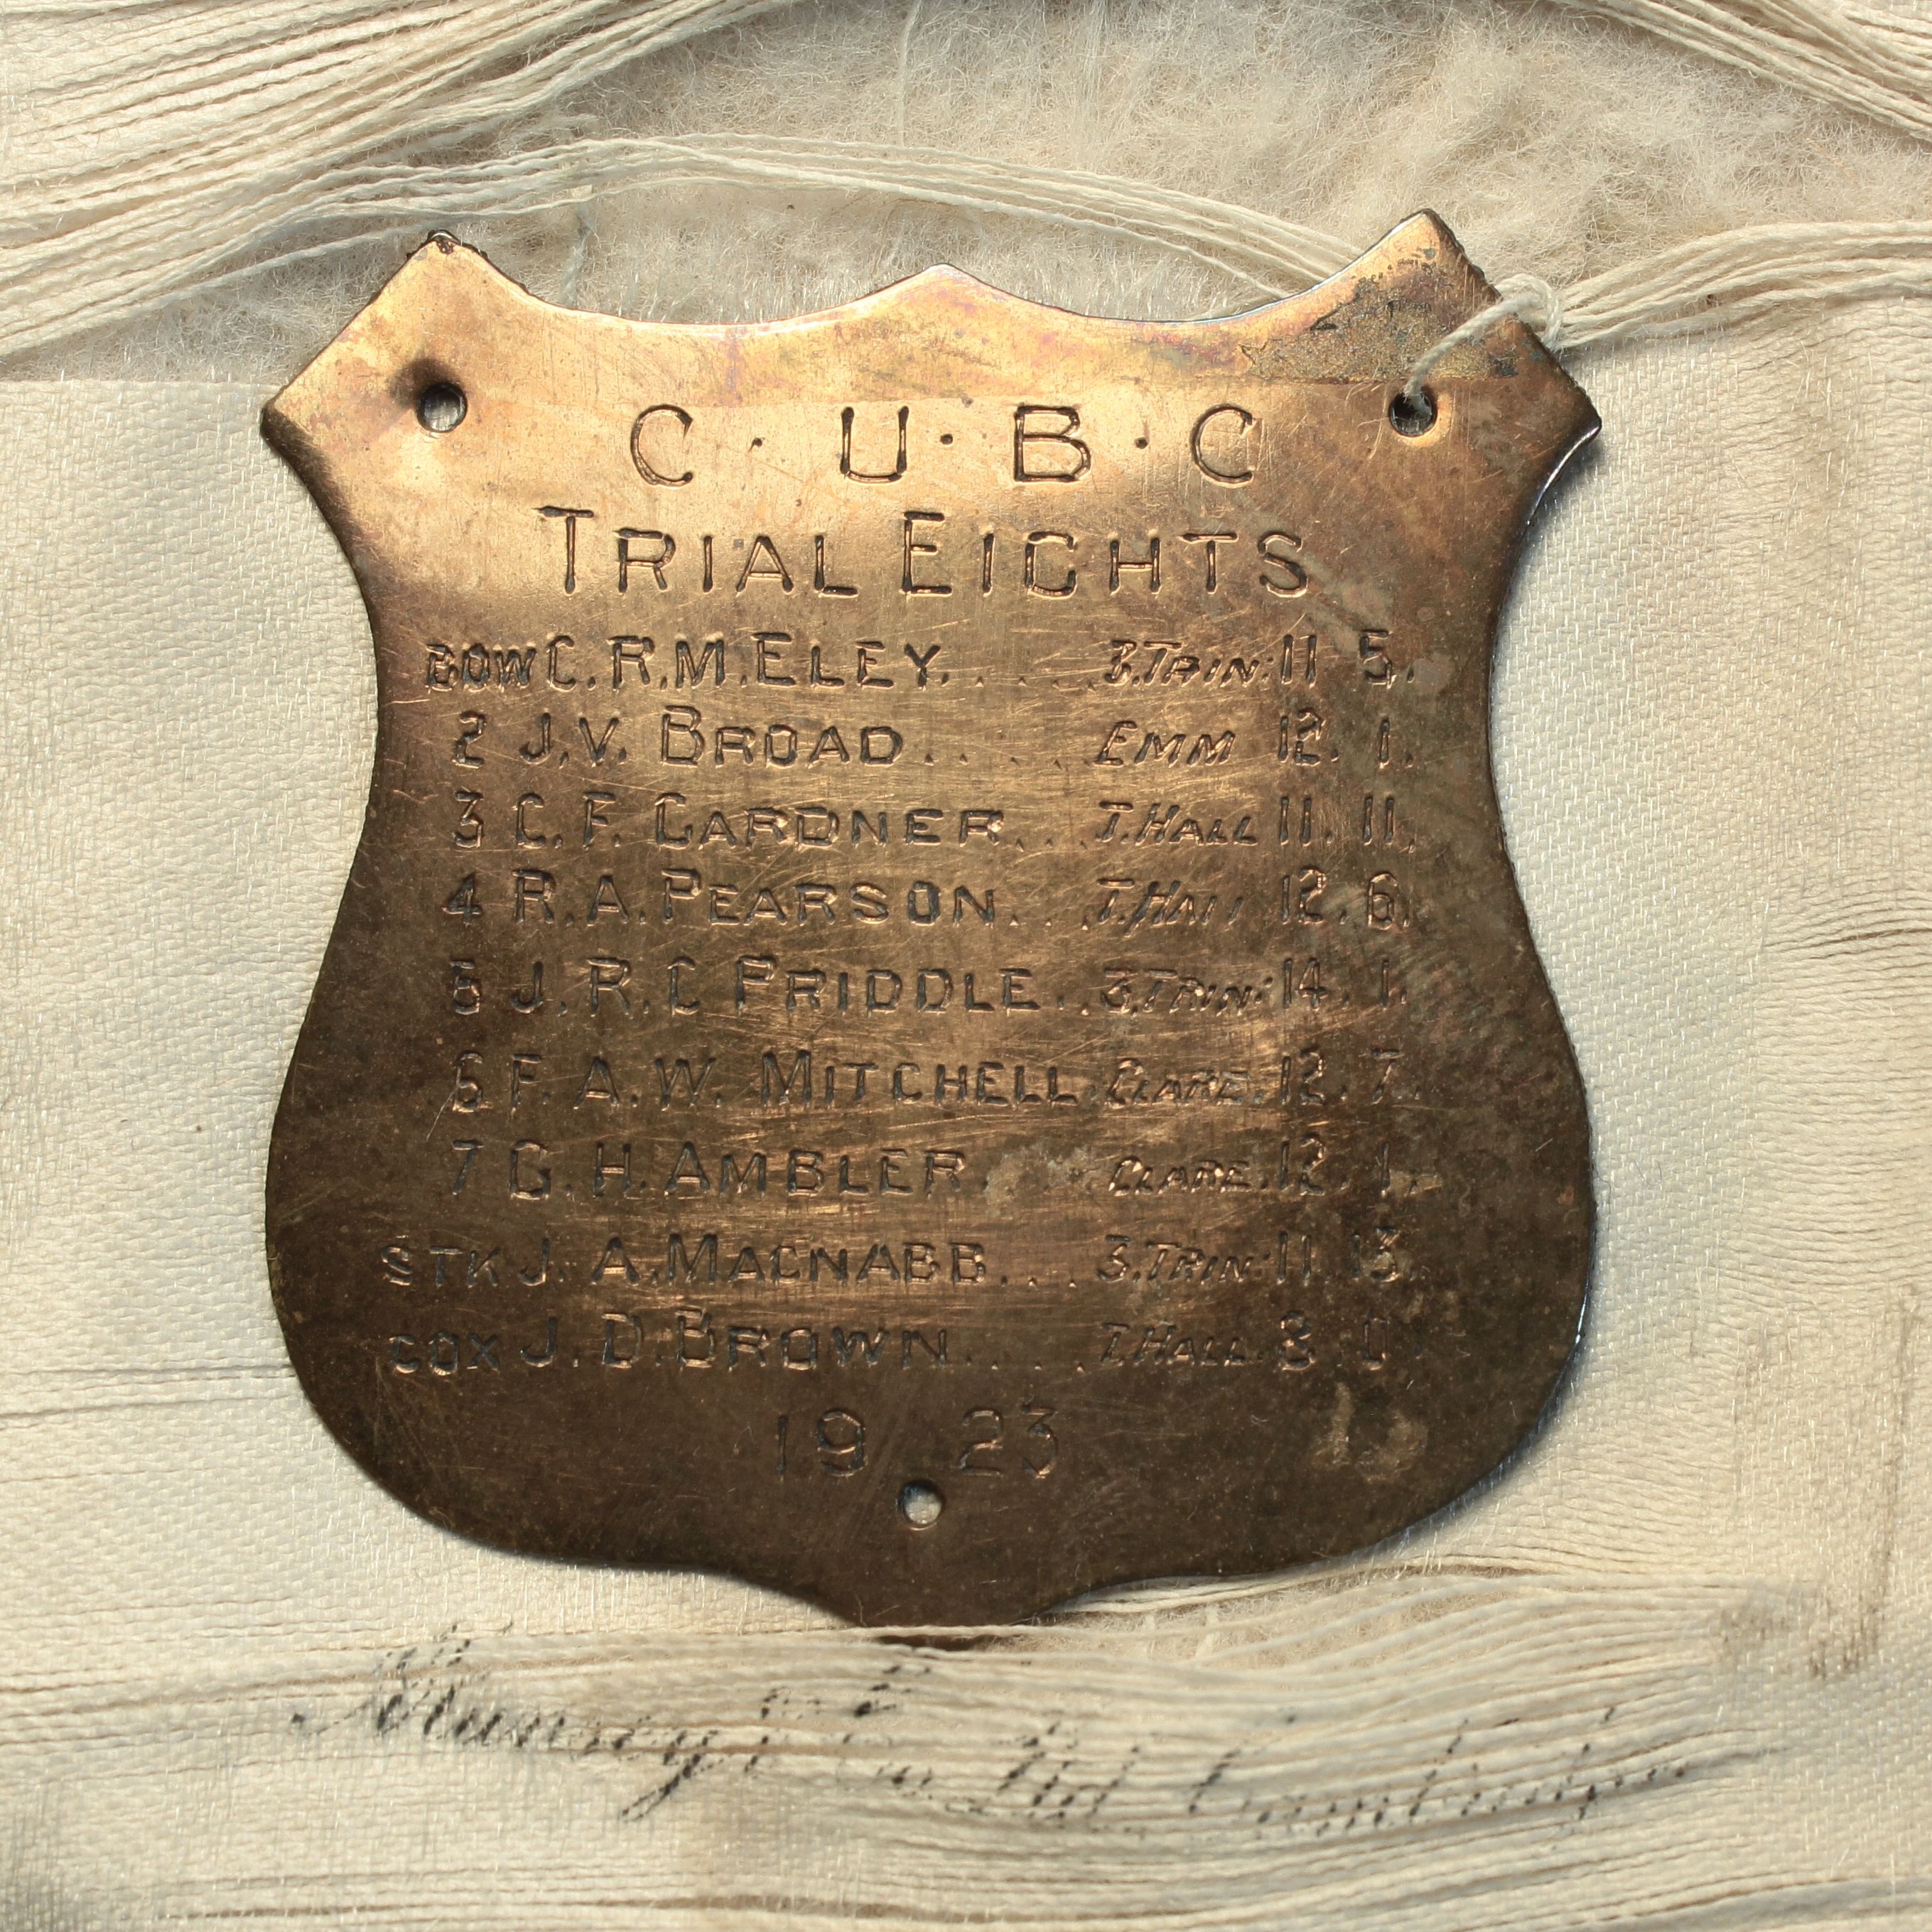 C · U · B · C
TRIAL EIGHTS
BOW C. R. M. ELEY. . . . . 3. TRIN: 11 5.
2 J. V. BROAD . . . . . EMM 12. 1.
3 C. F. GARDNER. . . T. HALL 11. 11.
4 R. A. PEARSON. . . T. HALL 12. 6.
5 J. R. C FRIDDLE . . 3. TRIN: 14. 1.
6 F. A. W. MITCHELL. CLARE. 12. 7.
7 G. H. AMBLER. CLARE. 12. 1.
STK J. A. MACNABB. . . . 3. TRIN: 11. 13.
COX J. D. BROWN. . . . . T. HALL. 8. 0
19 23
Munsey & Co. Ltd. Cambridge.